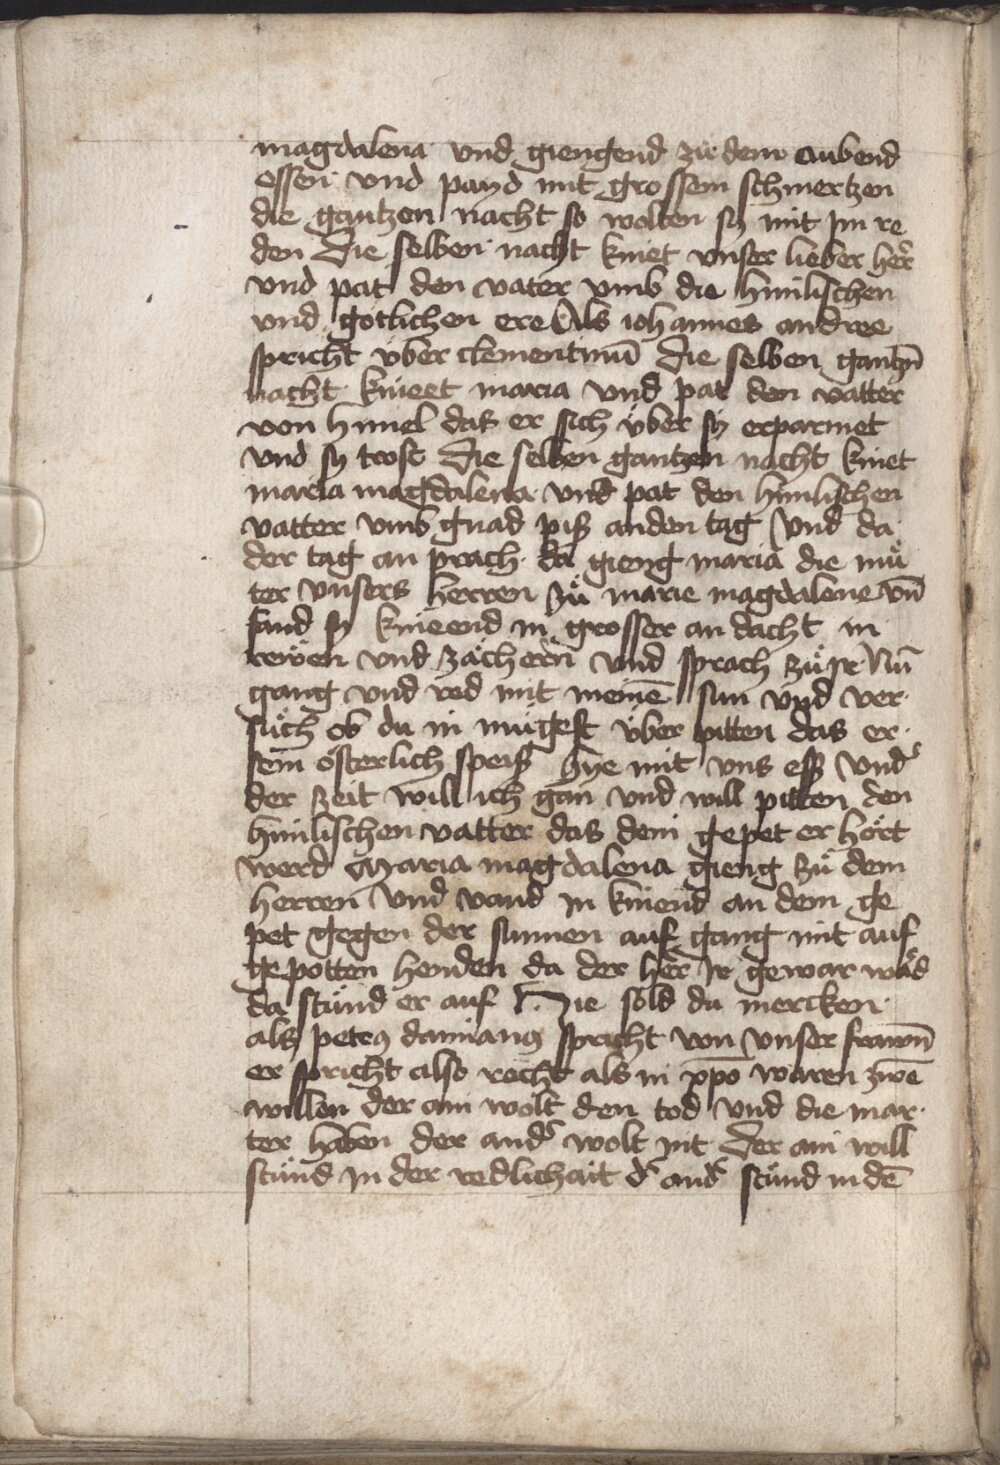 magdalena vnd giengend zů dem aubend
essen vnd payd mit grossem schmertzen
die gantzen nacht so wolten sy mit im re
den Die selben nacht kniet vnser lieber her̃
vnd pat den vater vmb die himlischen
vnd gotlichen ere Als iohannes andree
spricht v̈ber clementinū Die selben gantzn̄
nacht knieet maria vnd pat den vatter
von himel das er sich v̈ber sy erparmet
vnd sy trost Die selben gantzen nacht kniet
maria magdalena vnd pat den himlischen
vatter vmb gnad piß an den tag Vnd da
der tag an prach da gieng maria die mů
ter vnsers herren zů marie magdalene vn̄
fand sy knieend in grosser an dacht in
rewen vnd zächern vnd sprach zů ir Nū
gang vnd red mit meinē sun vnd ver
sůch ob du in mügest v̈ber pitten das er
sein österlich speiß hye mit vns eß vnd
der zeit will ich gan vnd will pitten den
himlischen vatter das dein gepet er hört
werd Maria magdalena gieng zů dem
herren vnd vand in kniend an dem ge
pet gegen der sunnen auf gang mit auf
gepotten henden da der her̃ ir gewar wåd
da stůnd er auf Hie sold du mercken
als petrꝯ damianꝯ spricht von vnser frawn̄
er spricht also recht als in xp̄o waren zwē
willen der ain wolt den tod vnd die mar
ter haben der and̾ wolt nit Der ain will
stůnd in der redlichait d̾ and̾ stůnd in dē